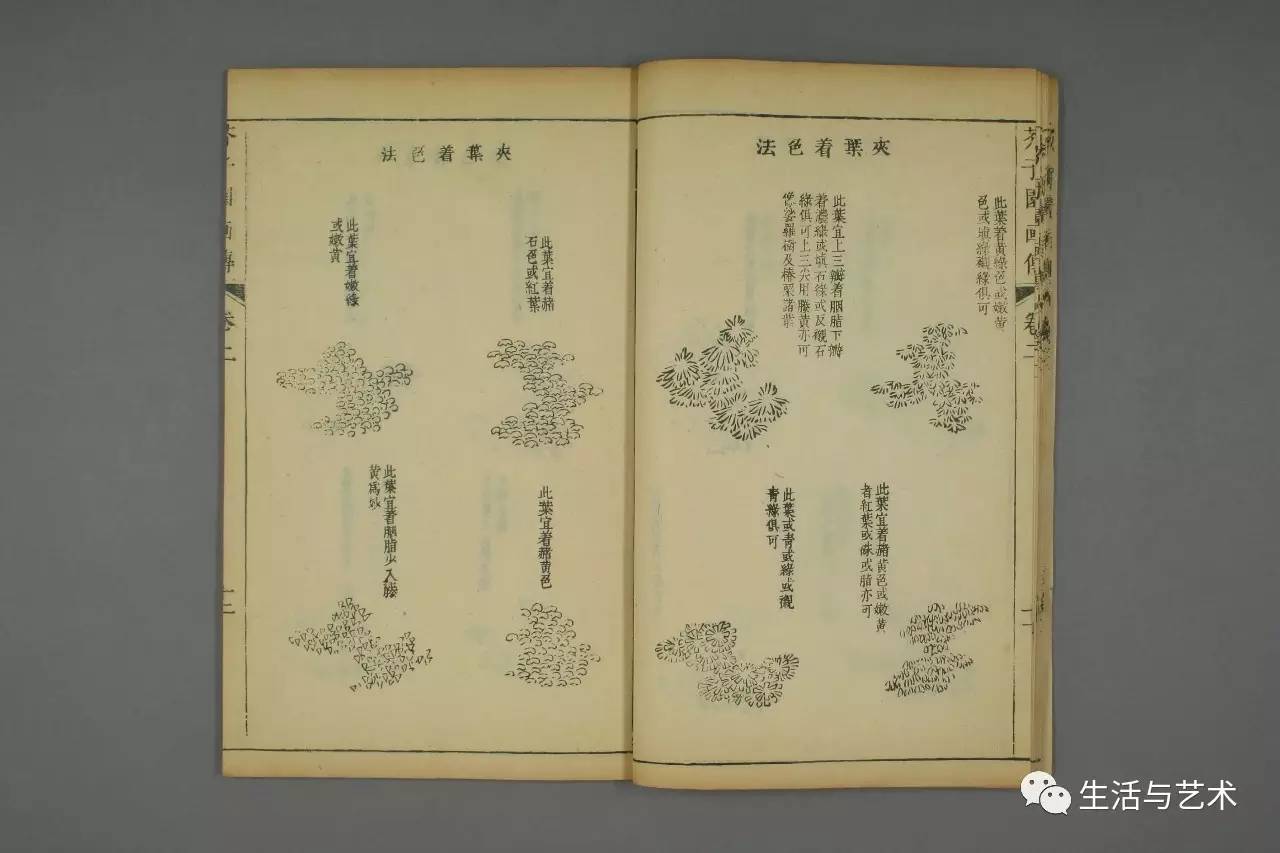 芥子園畫傳
卷二
夾葉着色法
此葉着黃綠色或嫩黃
色或填綠襯綠俱可
此葉宜上三瓣着胭脂下瓣
着濃綠或填石綠或反襯石
綠俱可上三尖用滕黃亦可
像娑羅樹及椿栗諸葉
此葉宜着赭黃色或嫩黃
者紅葉或硃或脂亦可
此葉或青或綠或襯
青綠俱可
夾葉着色法
此葉宜着赭
石色或紅葉
此葉宜着嫩綠
或嫩黃
此葉宜着赭黃色
此葉宜着胭脂少入滕
黃爲妙
芥子園畫傳
卷二
生活与艺术